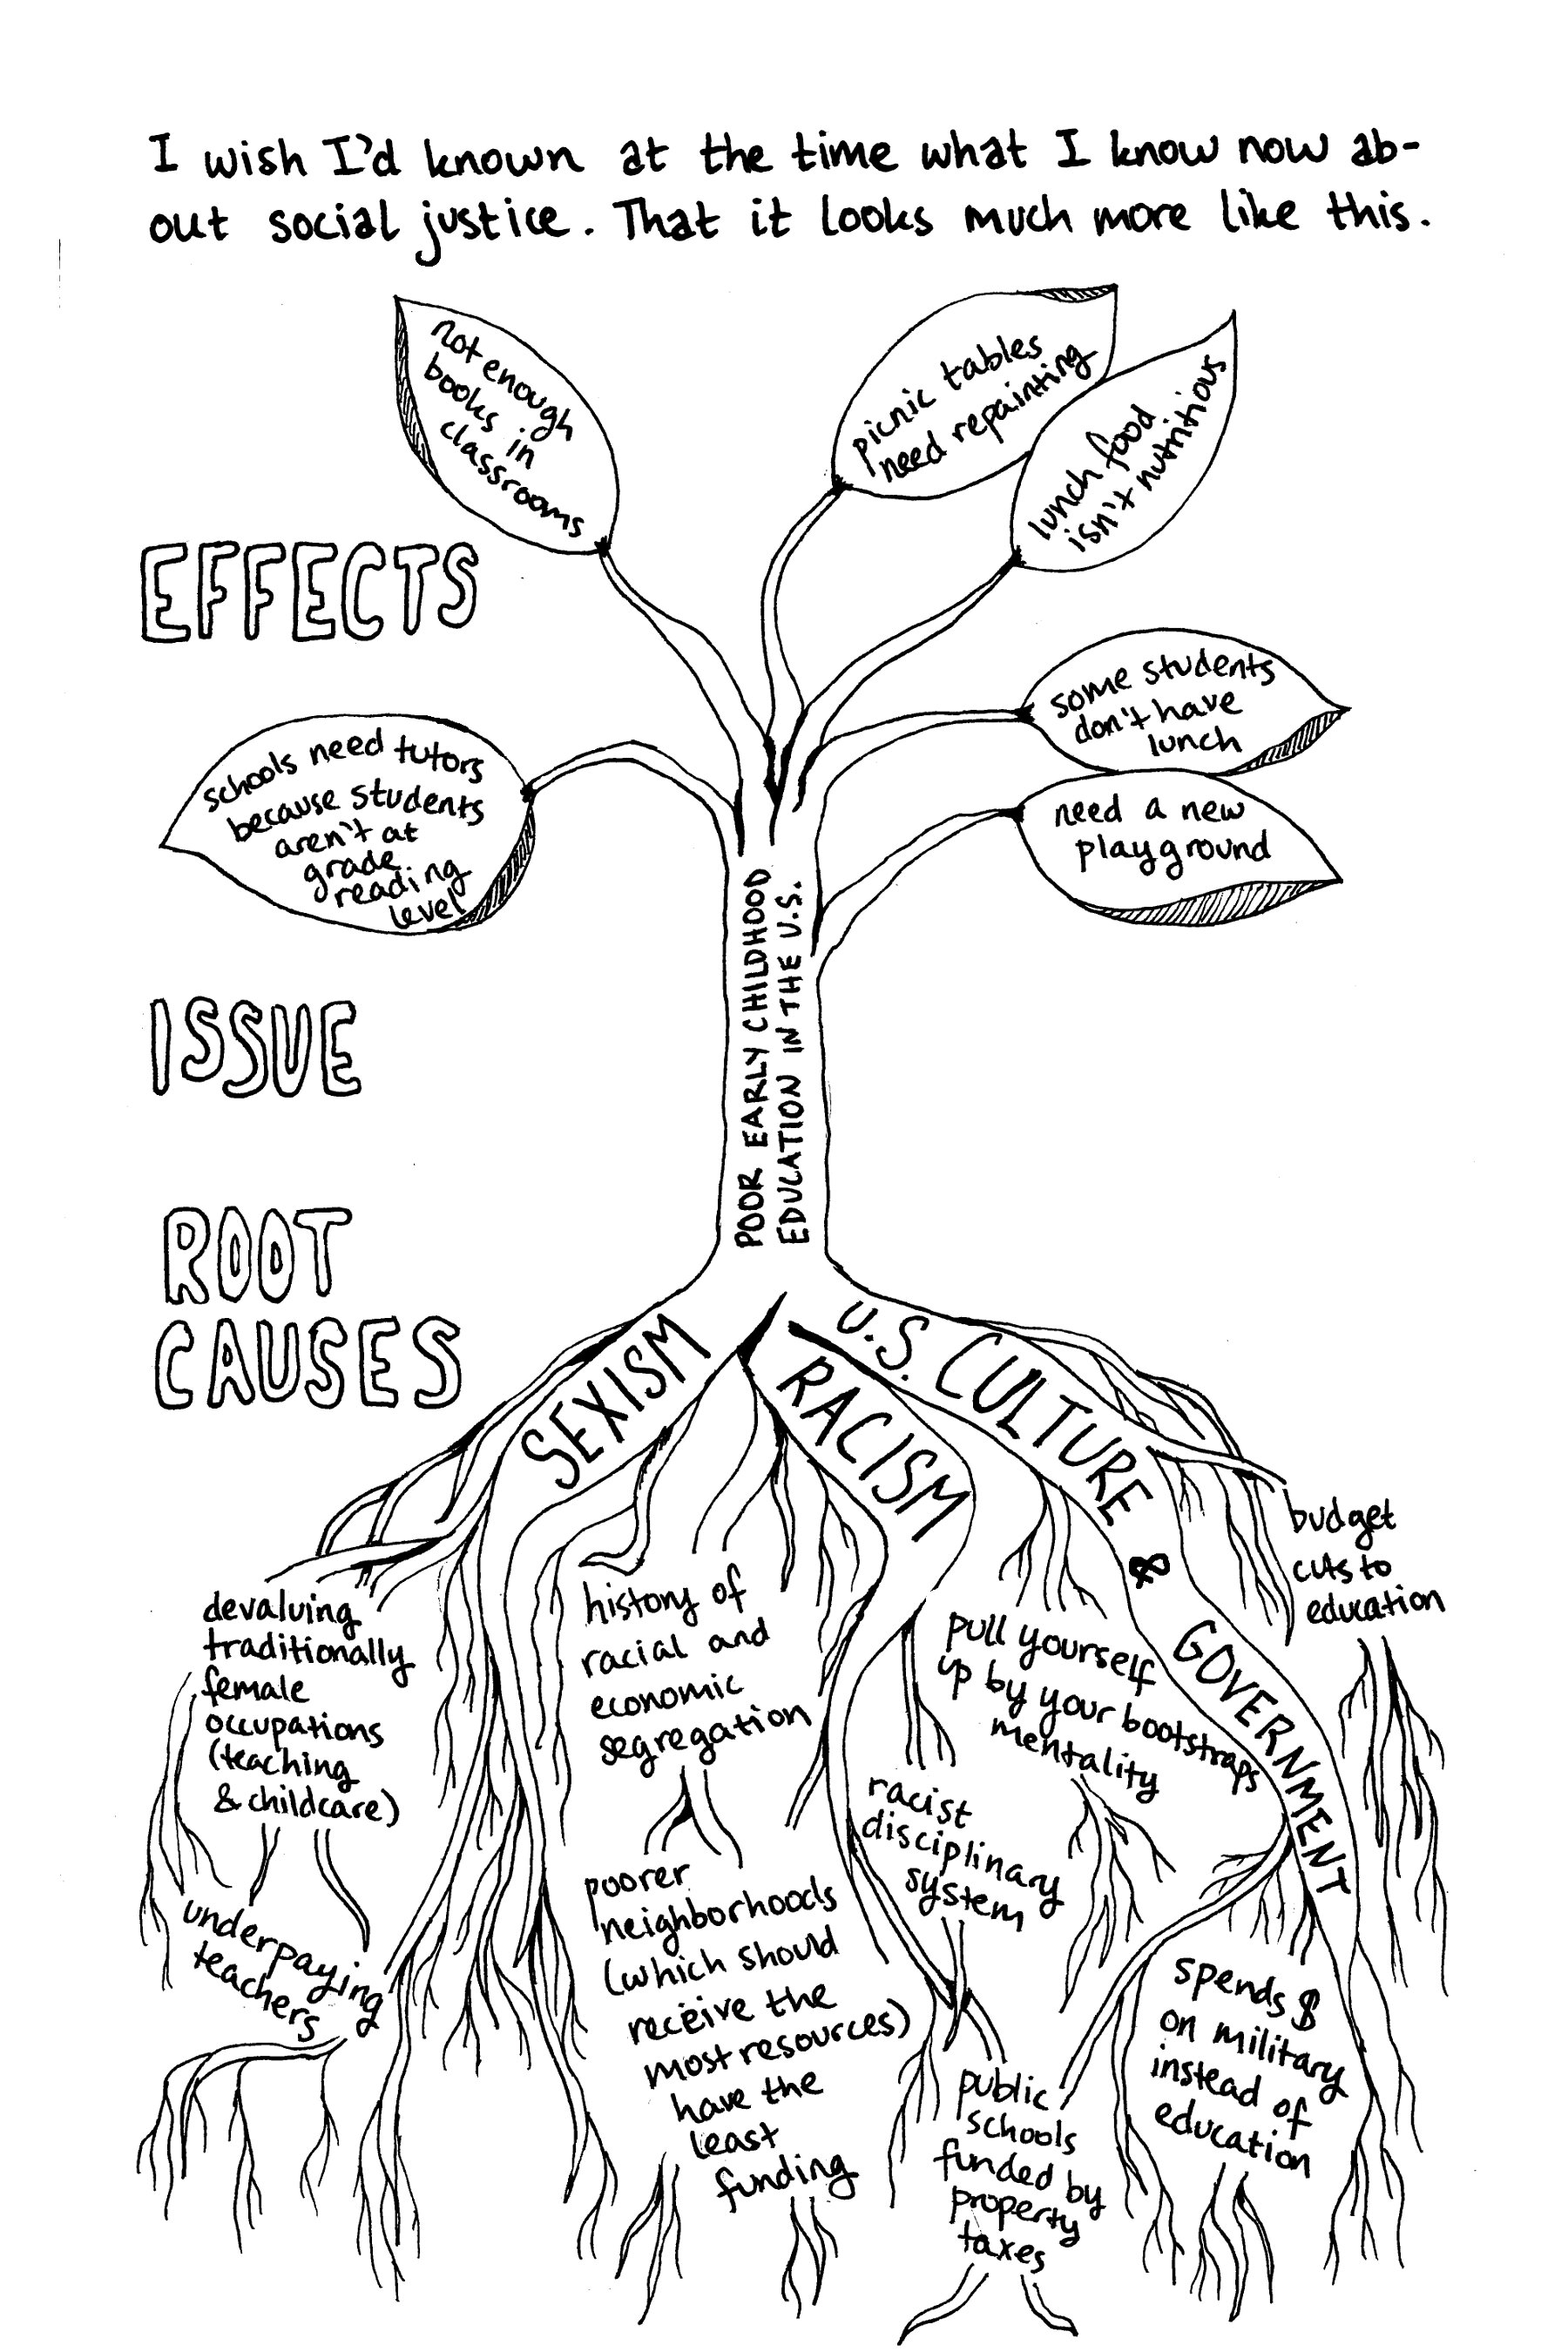 I wish I'd known at the time what I know now ab-
out social justice. That it looks much more like this.
not enough
books in
classrooms
picnic tables
need repainting
lunch food
isn't nutritious
EFFECTS
some students
don't have
lunch
schools need tutors
because students
aren't at
grade
reading
level
need a new
playground
ISSUE
POOR EARLY CHILDHOOD
EDUCATION IN THE U.S.
ROOT
CAUSES
SEXISM
RACISM
U.S. CULTURE & GOVERNMENT
budget
cuts to
education
devaluing
traditionally
female
occupations
(teaching
& childcare)
underpaying
teachers
history of
racial and
economic
segregation
poorer
neighborhoods
(which should
receive the
most resources)
have the
least
funding
pull yourself
up by your bootstraps
mentality
racist
disciplinary
system
public
schools
funded by
property
taxes
spends $
on military
instead of
education